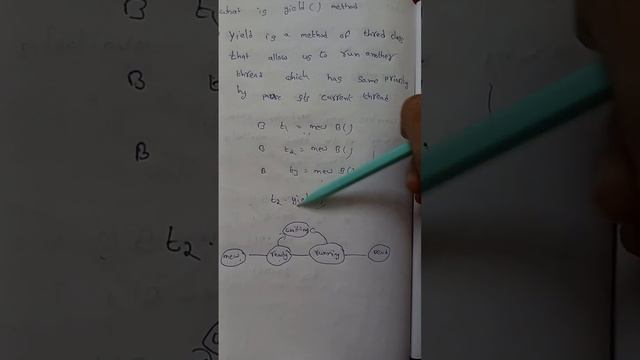 what is yield() method
Yield is a method of thred class
that allow us to run another
thread which has same priority
by pause its current thread
B t1 = new B()
B t2 = new B()
B t3 = new B()
t2.
waiting
new ready running dead